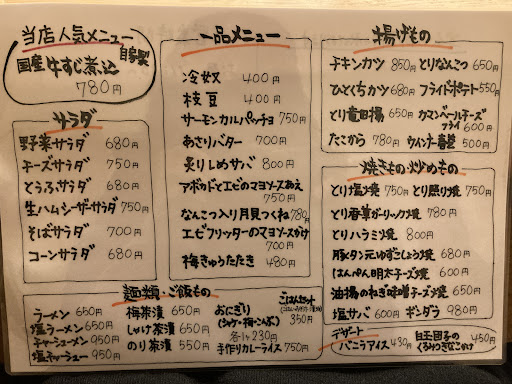 当店人気メニュー
自家製
国産牛すじ煮込
780円
サラダ
野菜サラダ 680円
チーズサラダ 750円
とうふサラダ 680円
生ハムシーザーサラダ 750円
そばサラダ 700円
コーンサラダ 680円
一品メニュー
冷奴 400円
枝豆 400円
サーモンカルパッチョ 750円
あさりバター 700円
炙りしめサバ 800円
アボカドとエビのマヨソースあえ
750円
なんこつ入り月見つくね 780円
エビフリッターのマヨソースがけ
700円
梅きゅうたたき 480円
揚げもの
チキンカツ 850円 とりなんこつ 650円
ひとくちかつ 680円 フライドポテト 550円
とり竜田揚 650円 カマンベールチーズ
フライ 600円
たこから 780円 ウインナー春巻 500円
焼きもの・炒めもの
とり塩焼 750円 とり照り焼 750円
とり香草ガーリック焼 780円
とりハラミ塩焼 800円
豚タン元ゆずこしょう焼 680円
はんぺん明太チーズ焼 600円
油揚のねぎ味噌チーズ焼 650円
塩サバ 600円 ギンダラ 980円
麺類・ご飯もの
ラーメン 650円
塩ラーメン 650円
チャーシューメン 950円
塩チャーシュー 950円
梅茶漬 650円
しゃけ茶漬 650円
のり茶漬 550円
おにぎり
(シャケ・梅・こんぶ)
各1ヶ 230円
手作りカレーライス 750円
ごはんセット
350円
デザート
バニラアイス 430円
白玉団子の
くるみつきなこがけ
450円